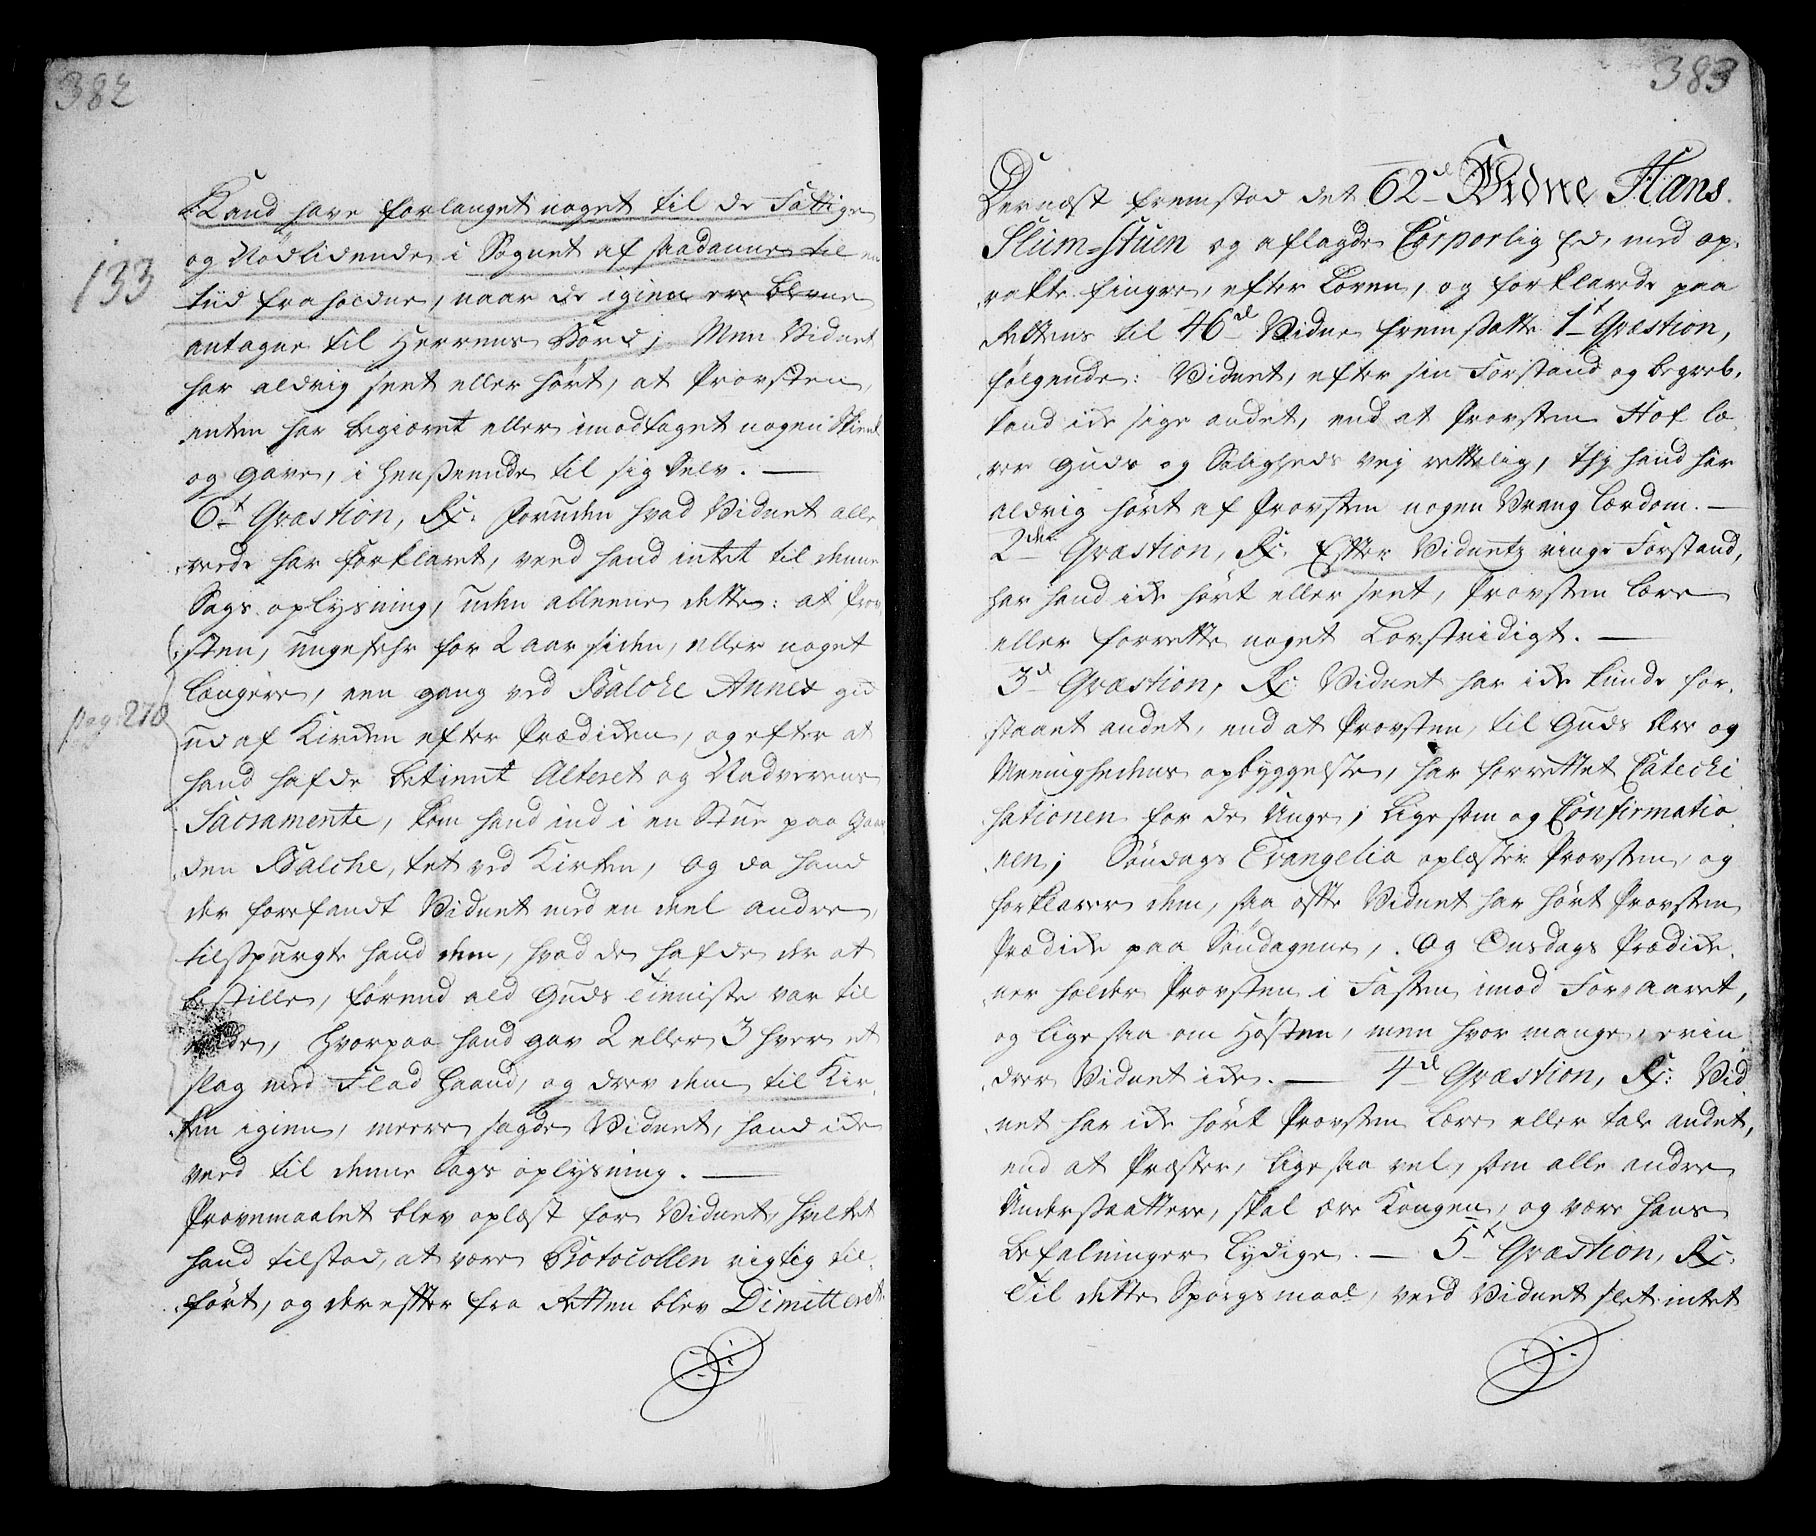 382
133
Kand have forlanget noget til de Fattige
og Nødlidende i Sognet af saadanne til en
tiid fraholdne, naar de igien ere blevne
antagne til Herrens Bord; Men Vidnet
har aldrig seet eller hørt, at Provsten,
enten har begiæret eller imodtaget nogen Skienk
og Gave, i henseende til sig Selv. —
6t Qvæstion, Rx: Foruden hvad Vidnet alle
rede har forklaret, veed hand intet til denne
Sags oplysning, uden alleene dette: at Prov
sten, ungefehr for 2 aar siden, eller noget
længere, een gang ved Balche Annex gik
pag: 270
ud af Kirken efter Prædiken, og efter at
hand hafde betient Alteret og Nadverens
Sacramente, kom hand ind i en Stue paa Gaar
den Balche, tet ved Kirken, og da hand
der forefandt Vidnet med en deel andre,
tilspurgte hand dem, hvad de hafde der at
bestille, førend ald Guds Tieniste var til
ende, hvorpaa hand gav 2 eller 3 hver et
slag med Flad Haand, og drev dem til Kir
ken igien, meere sagde Vidnet, hand ide
veed til denne Sags oplysning. —
Provemaalet blev oplæst for Vidnet, hvilket
hand tilstod, at være Protocollen rigtig til
ført, og derefter fra Retten blev Dimitteret.
383
Dernæst fremstod det 62d Vidne Hans
Slüm-stuen og aflagde Corporlig Eed, med op
rakte fingre, efter Loven, og forklarede paa
Rettens til 46d Vidne fremsatte 1t Qvæstion,
følgende: Vidnet, efter sin Forstand og begreb,
kand ide sige andet, end at Provsten Hof læ
rer Guds og Saligheds vej rettelig, thj hand har
aldrig hørt af Provsten nogen Vrang Lærdom. —
2den Qvæstion, Rx: Efter Vidnetz ringe Forstand,
har hand ide hørt eller seet, Provsten lære
eller forrette noget Lovstridigt. —
3d Qvæstion, Rx: Vidnet har ide kunde for
staaet andet, end at Provsten, til Guds Ære og
Meenighedens opbyggelse, har forrettet Catechi
sationen for de Unge; Ligesom og Confirmatio
nen; Søndags Evangelia oplæser Provsten, og
forklarer dem, saa ofte Vidnet har hørt Provsten
Prædike paa Søndagene, . Og Onsdags Prædike
ner holder Provsten i Fasten imod Foraaret,
og lige saa om Høsten, men hvor mange, erin
drer Vidnet ide. — 4d Qvæstion, Rx: Vid
net har ide hørt Provsten lære eller tale andet,
end at Præster, lige saa vel, som alle andre
Undersaattere, skal ære Kongen, og være hans
befalninger lydige. — 5t Qvæstion, Rx:
Til dette Spørgsmaal, veed Vidnet slet intet